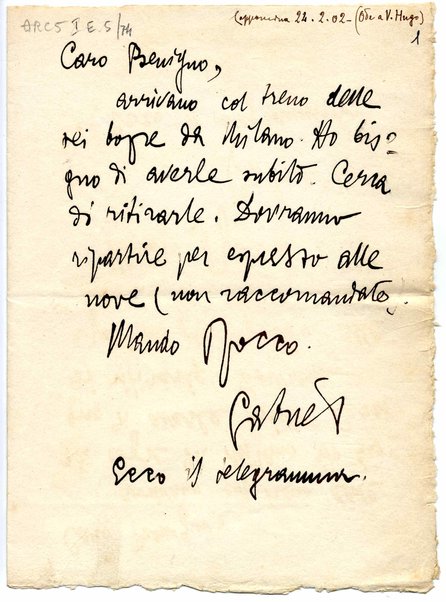 ARC5 I E.5/74
Capponcina 24.2.02 - (Ode a V. Hugo)
1
Caro Benigno,
arrivano col treno delle
sei bozze da Milano. Ho biso=
gno di averle subito. Cerca
di ritirarle. Dovranno
ripartire per espresso alle
nove (non raccomandate).
Mando Rocco.
Gabriele
Ecco il telegramma.